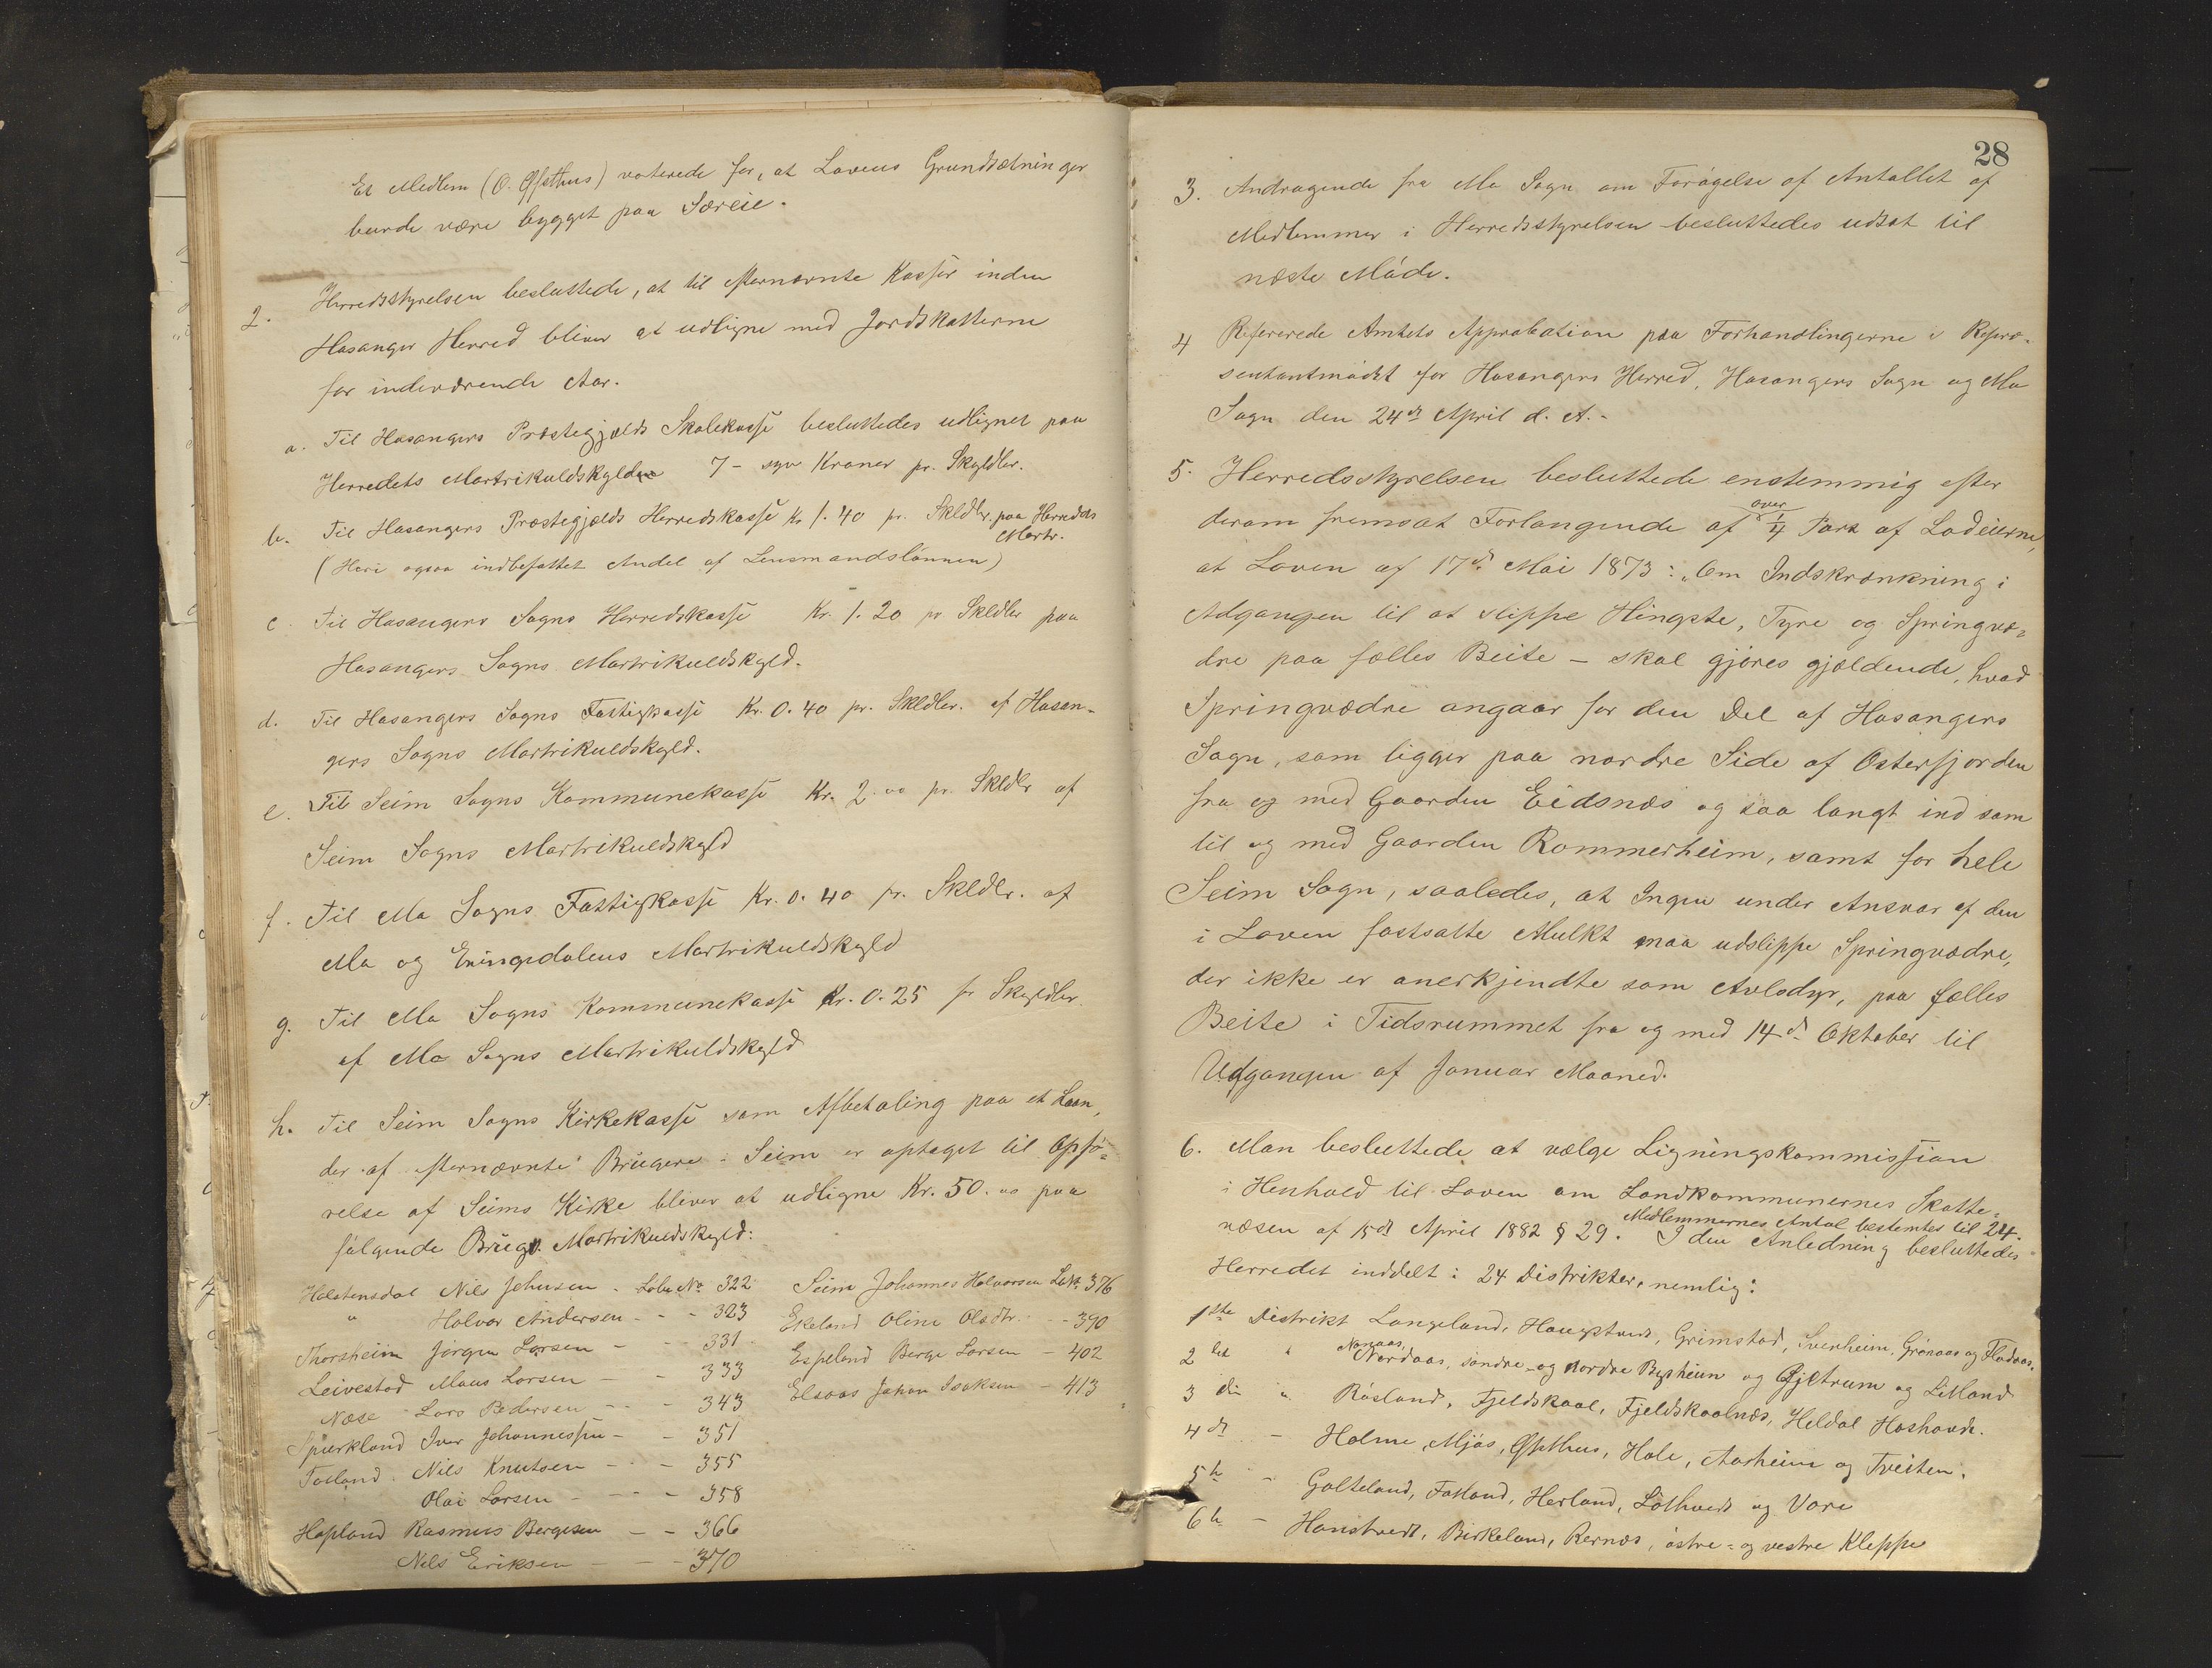 Et Medlem (O. Øfsthus) voterede for, at Lovens Grundsætninger
burde være bygget paa Særeie.
2. Herredsstyrelsen besluttede, at til efternævnte Kasser inden
Hosanger Herred bliver at udligne med Jordskatterne
for indeværende Aar.
a. Til Hosangers Præstegjælds Skolekasse besluttedes udlignet paa
Herredets Martrikuldskylden 7 - syv Kroner pr. Skyldlr.
b. Til Hosangers Præstegjælds Herredskasse Kr 1.40 pr. Skldlr. paa Herredets
Martr.
(Heri ogsaa indbefattet Andel af Lensmandslönnen)
c. Til Hosangers Sogns Herredskasse Kr. 1.20 pr Skldlr paa
Hosangers Sogns Martrikuldskyld.
d. Til Hosangers Sogns Fattigkasse Kr. 0.40 pr. Skldlr. af Hosan-
gers Sogns Martrikuldskyld.
e. Til Seim Sogns Kommunekasse Kr. 2.00 pr. Skldlr af
Seim Sogns Martrikuldskyld
f. Til Mo Sogns Fattigkasse Kr. 0.40 pr. Skldlr. af
Mo og Eningdalens Martrikuldskyld
g. Til Mo Sogns Kommunekasse Kr. 0.25 pr Skyldlr.
af Mo Sogns Martrikuldskyld
h. Til Seim Sogns Kirkekasse som Afbetaling paa et Laan,
der af efternævnte Brugere i Seim er optaget til Opfö-
relse af Seims Kirke bliver at udligne Kr. 50.00 paa
følgende Brugs Martrikuldskyld:
Holstensdal Nils Johnsen - Löbe No 322 Seim Johannes Halvorsen LNo 376
" Halvor Andersen - - 323 Ekeland Oline Olsdtr. - - 390
Thorsheim Jörgen Larsen - - 331 Espeland Berge Larsen - 402
Leivestad Mons Larsen - - 333 Elsaas Johan Isaksen - 413
Næse Lars Pedersen - - 343
Spurkland Iver Johannessen - - 351
Toeland Nils Knutsen - - 355
Olai Larsen - - - 358
Hopland Rasmus Bergesen - - 366
Nils Eriksen - - - 370
28
3. Andragende fra Mo Sogn om Forögelse af Antallet af
Medlemmer i Herredsstyrelsen besluttedes udsat til
næste Möde.
4 Refererede Amtets Approbation paa Forhandlingerne i Repræ-
sentantmödet for Hosangers Herred, Hosangers Sogn og Mo
Sogn den 24de April d. A. -
5. Herredsstyrelsen besluttede enstemmig efter
over
derom fremsat Forlangende af 1/4 Part af Lodeierne,
at Loven af 17de Mai 1873: "Om Indskrænkning i
Adgangen til at slippe Hingste, Tyre og Springvæ-
dre paa fælles Beite - skal gjöres gjældende, hvad
Springvædre angaar for den Del af Hosangers
Sogn, som ligger paa nordre Side af Osterfjorden
fra og med Gaarden Eidsnæs og saa langt ind som
til og med Gaarden Rommerheim, samt for hele
Seim Sogn, saaledes, at Ingen under Ansvar af den
i Loven fastsatte Mulkt maa udslippe Springvædre,
der ikke er anerkjendte som Avlsdyr, paa fælles
Beite i Tidsrummet fra og med 14de Oktober til
Udgangen af Januar Maaned.
6. Man besluttede at vælge Ligningskommission
i Henhold til Loven om Landkommunernes Skatte-
væsen af 15de April 1882 § 29. Medlemmernes Antal bestemtes til 24.
I den Anledning besluttedes
Herredet inddelt i 24 Distrikter, nemlig:
1ste Distrikt Langeland, Haugstvedt, Grimstad, Svenheim, Grönaas og Flodaas.
Norvaas,
2det " Nordaas, söndre- og nordre Bysheim og Øjetrum og Litland
3die " Rösland, Fjeldskaal, Fjeldskaalnæs, Heldal Hoshovde.
4de - Holme, Mjös, Øfsthus, Hole, Aarheim og Tveiten.
5te - Galteland, Fotland, Herland, Löthvedt og Vare
6te - Hanstvedt, Birkeland, Rernæs, östre- og vestre Kleppe